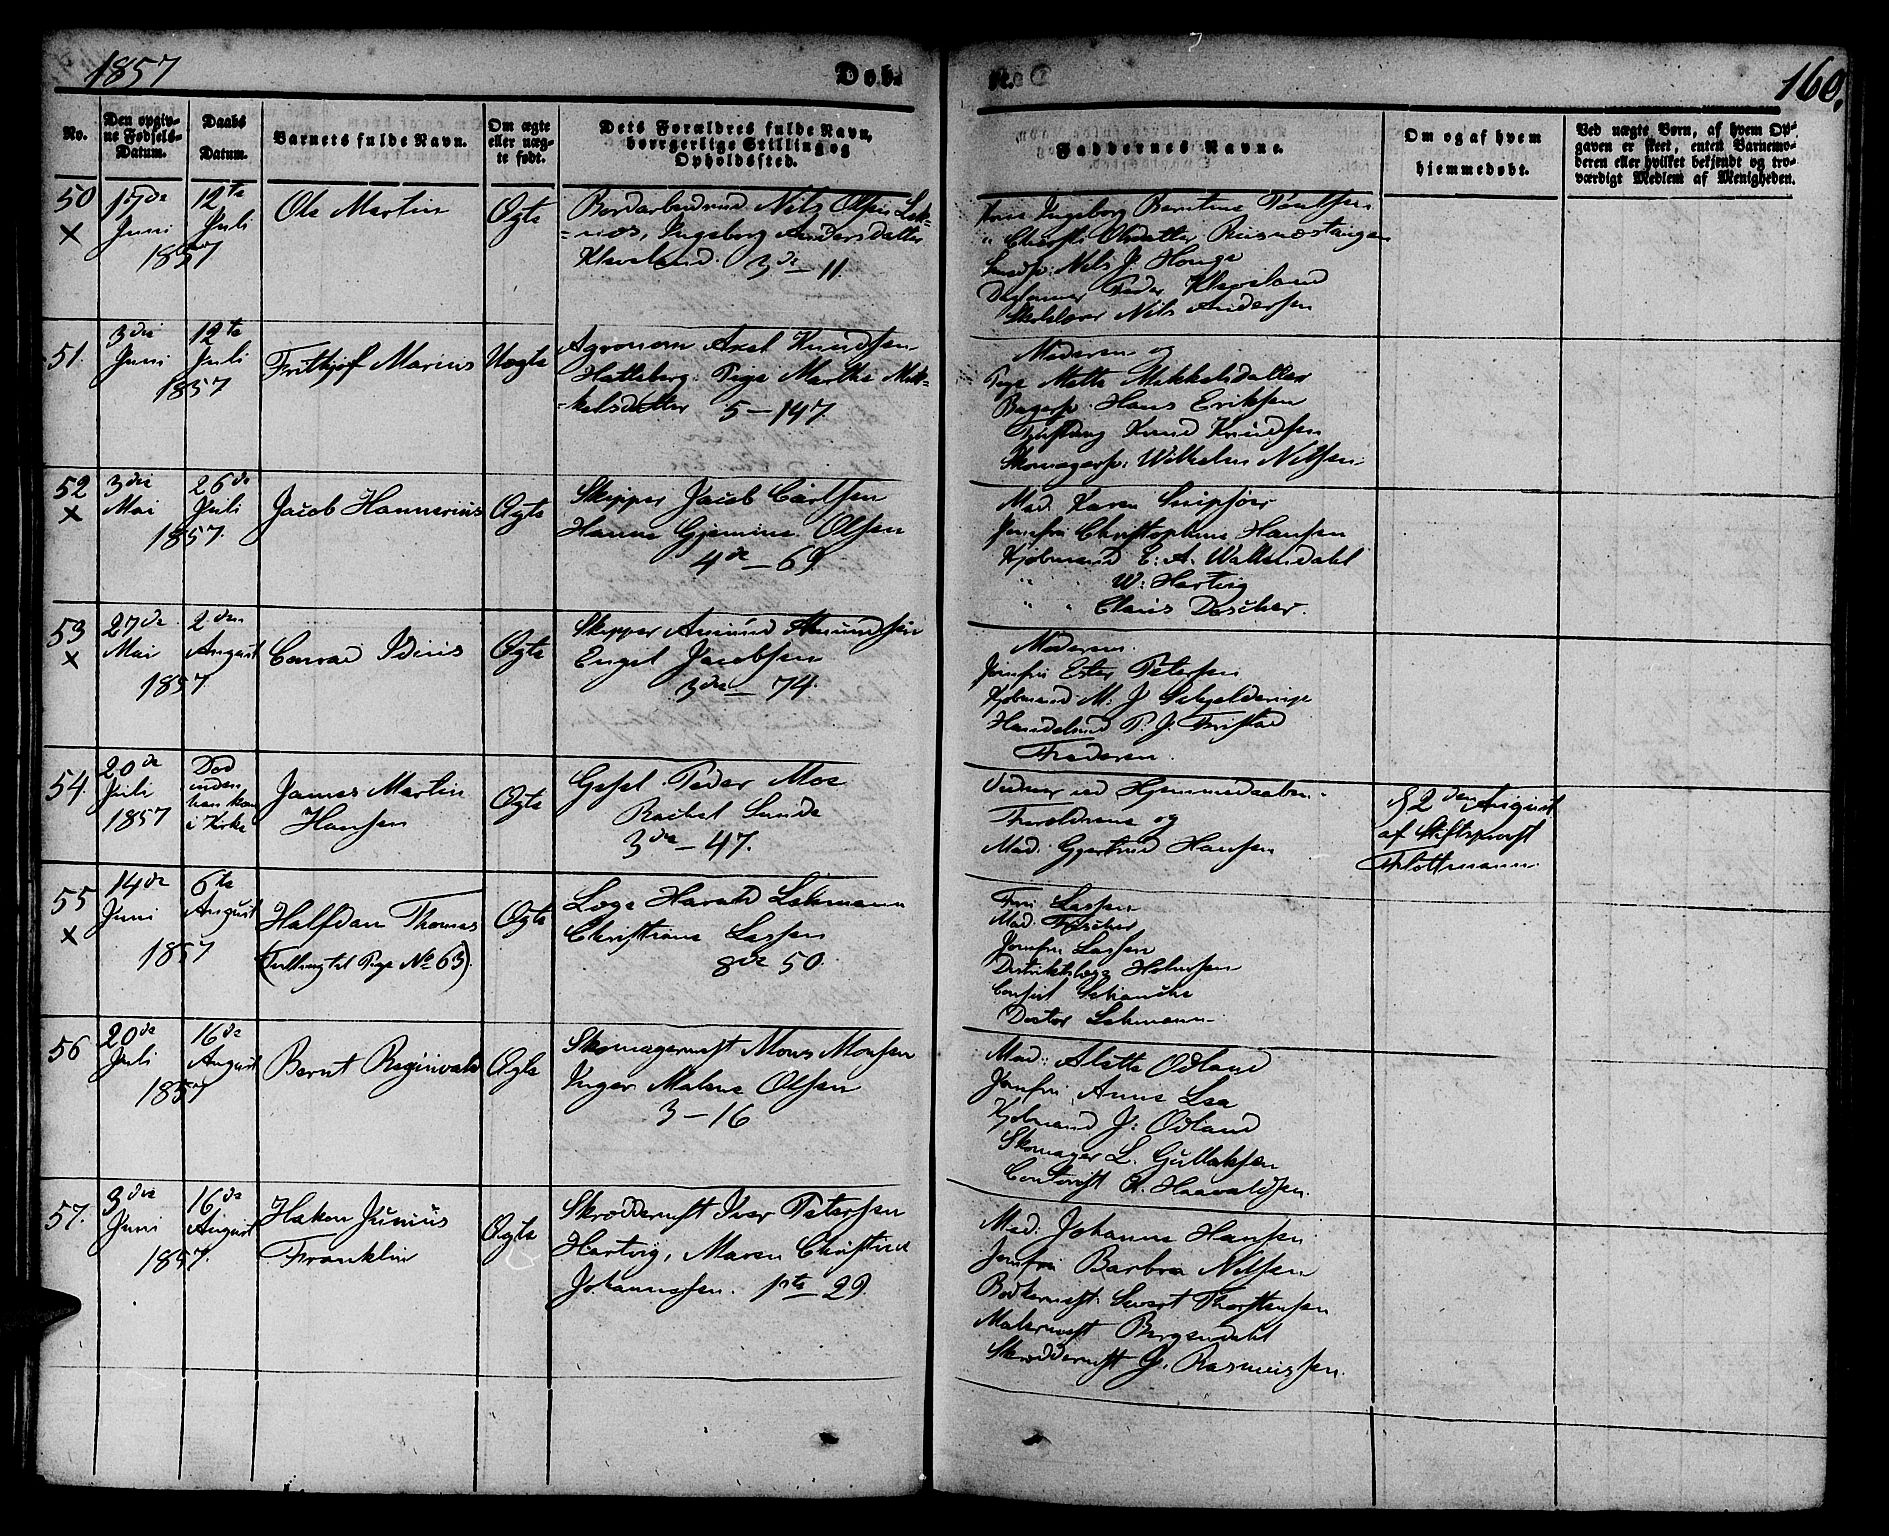 1857
Døb
te.
160.
No.
Den opgiv-
ne Fødsels-
Datum.
Daabs
Datum.
Barnets fulde Navn.
Om ægte
eller uæg-
te født.
Dets Forældres fulde Navn,
borgerlige Stilling og
Opholdssted.
Faddernes Navne.
Om og af hvem
hjemmedøbt.
Ved uægte Børn, af hvem Op-
gaven er skeet, enten Barnemo-
deren eller hvilket bekjendt og tro-
værdigt Medlem af Menigheden.
50
×
17de
Juni
12te
Juli
1857
Ole Martin
Ægte
Nils Olsen
Ingeborg Andersdatter
Kleveland. 3de – 11.
Ingeborg Berntine Poulsen
Olsdatter
Nils J. Houge
Peder Kleveland
Nils Andersen
51.
3die
Juni
12te
Juli
1857
Frithjof Marius
Uægte
Agronom Axel Knudsen
Hatleberg. Pige Marthe Mik-
kelsdatter 5 – 147.
Moderen og
Pige Mette Mikkelsdatter
Hans Eriksen
Knud Knudsen
Wilhelm Nilsen
52
×
3die
Mai
26de
Juli
1857.
Jacob Hannerius
Ægte
Skipper Jacob Carlsen
Hanne Gjemine Olsen
4de – 69
Mad. Karen
Jomfru Christophine Hansen
Kjøbmand E. A. Wallendahl
" W: Hartvig
" " Claus
53
×
27de
Mai
2den
August
1857.
Conrad Idius
Ægte
Skipper Amund Amundsen
Engel Jacobsen
3die – 74.
Moderen.
Jomfru Ester Petersen
Kjøbmand M. J. Schjelderup
P. J. Fristad
Faderen.
54.
20de
Juli
1857
Død
inden
han kom
i Kirke
James Martin
Hansen
Ægte
Peder Moe
Rachel Sunde
3die – 47.
Forældrene og
Mad. Gjertrud Hansen
§ 2den August
af Stiftsprovst
Flottmann.
55
×
14de
Juni
6te
August
1857
Halfdan Thomas
(Tvilling til Pige No 63).
Ægte
Læge Harald Lehmann
Christiane Lassen
8de 50.
Fru Lassen
Mad. Fischer
Jomfru Lassen
Distriktslæge Holmsen
Consul Schancke
Doctor Lehmann.
56
20de
Juli
16de
August
1857
Bernt Reginvald
Ægte
Skomagermst Mons Monsen
Inger Malene Olsen
3 – 16
Mad: Alette Odland
Jomfru Anne Lea
Kjøbmand J: Odland
Skomager L. Gullaksen
Haavaldsen.
57.
3die
Juni
16de
August
1857.
Haken Junius
Franklin
Ægte
Skræddermst Iver Petersen
Hartvig, Maren Christine
Johannessen. 1ste – 29.
Mad. Johanne Hansen
Jomfru Barbra Nilsen
Bødkermst. Sivert Thorstensen
Malermst Bergendahl
Skræddermst G. Rasmussen.